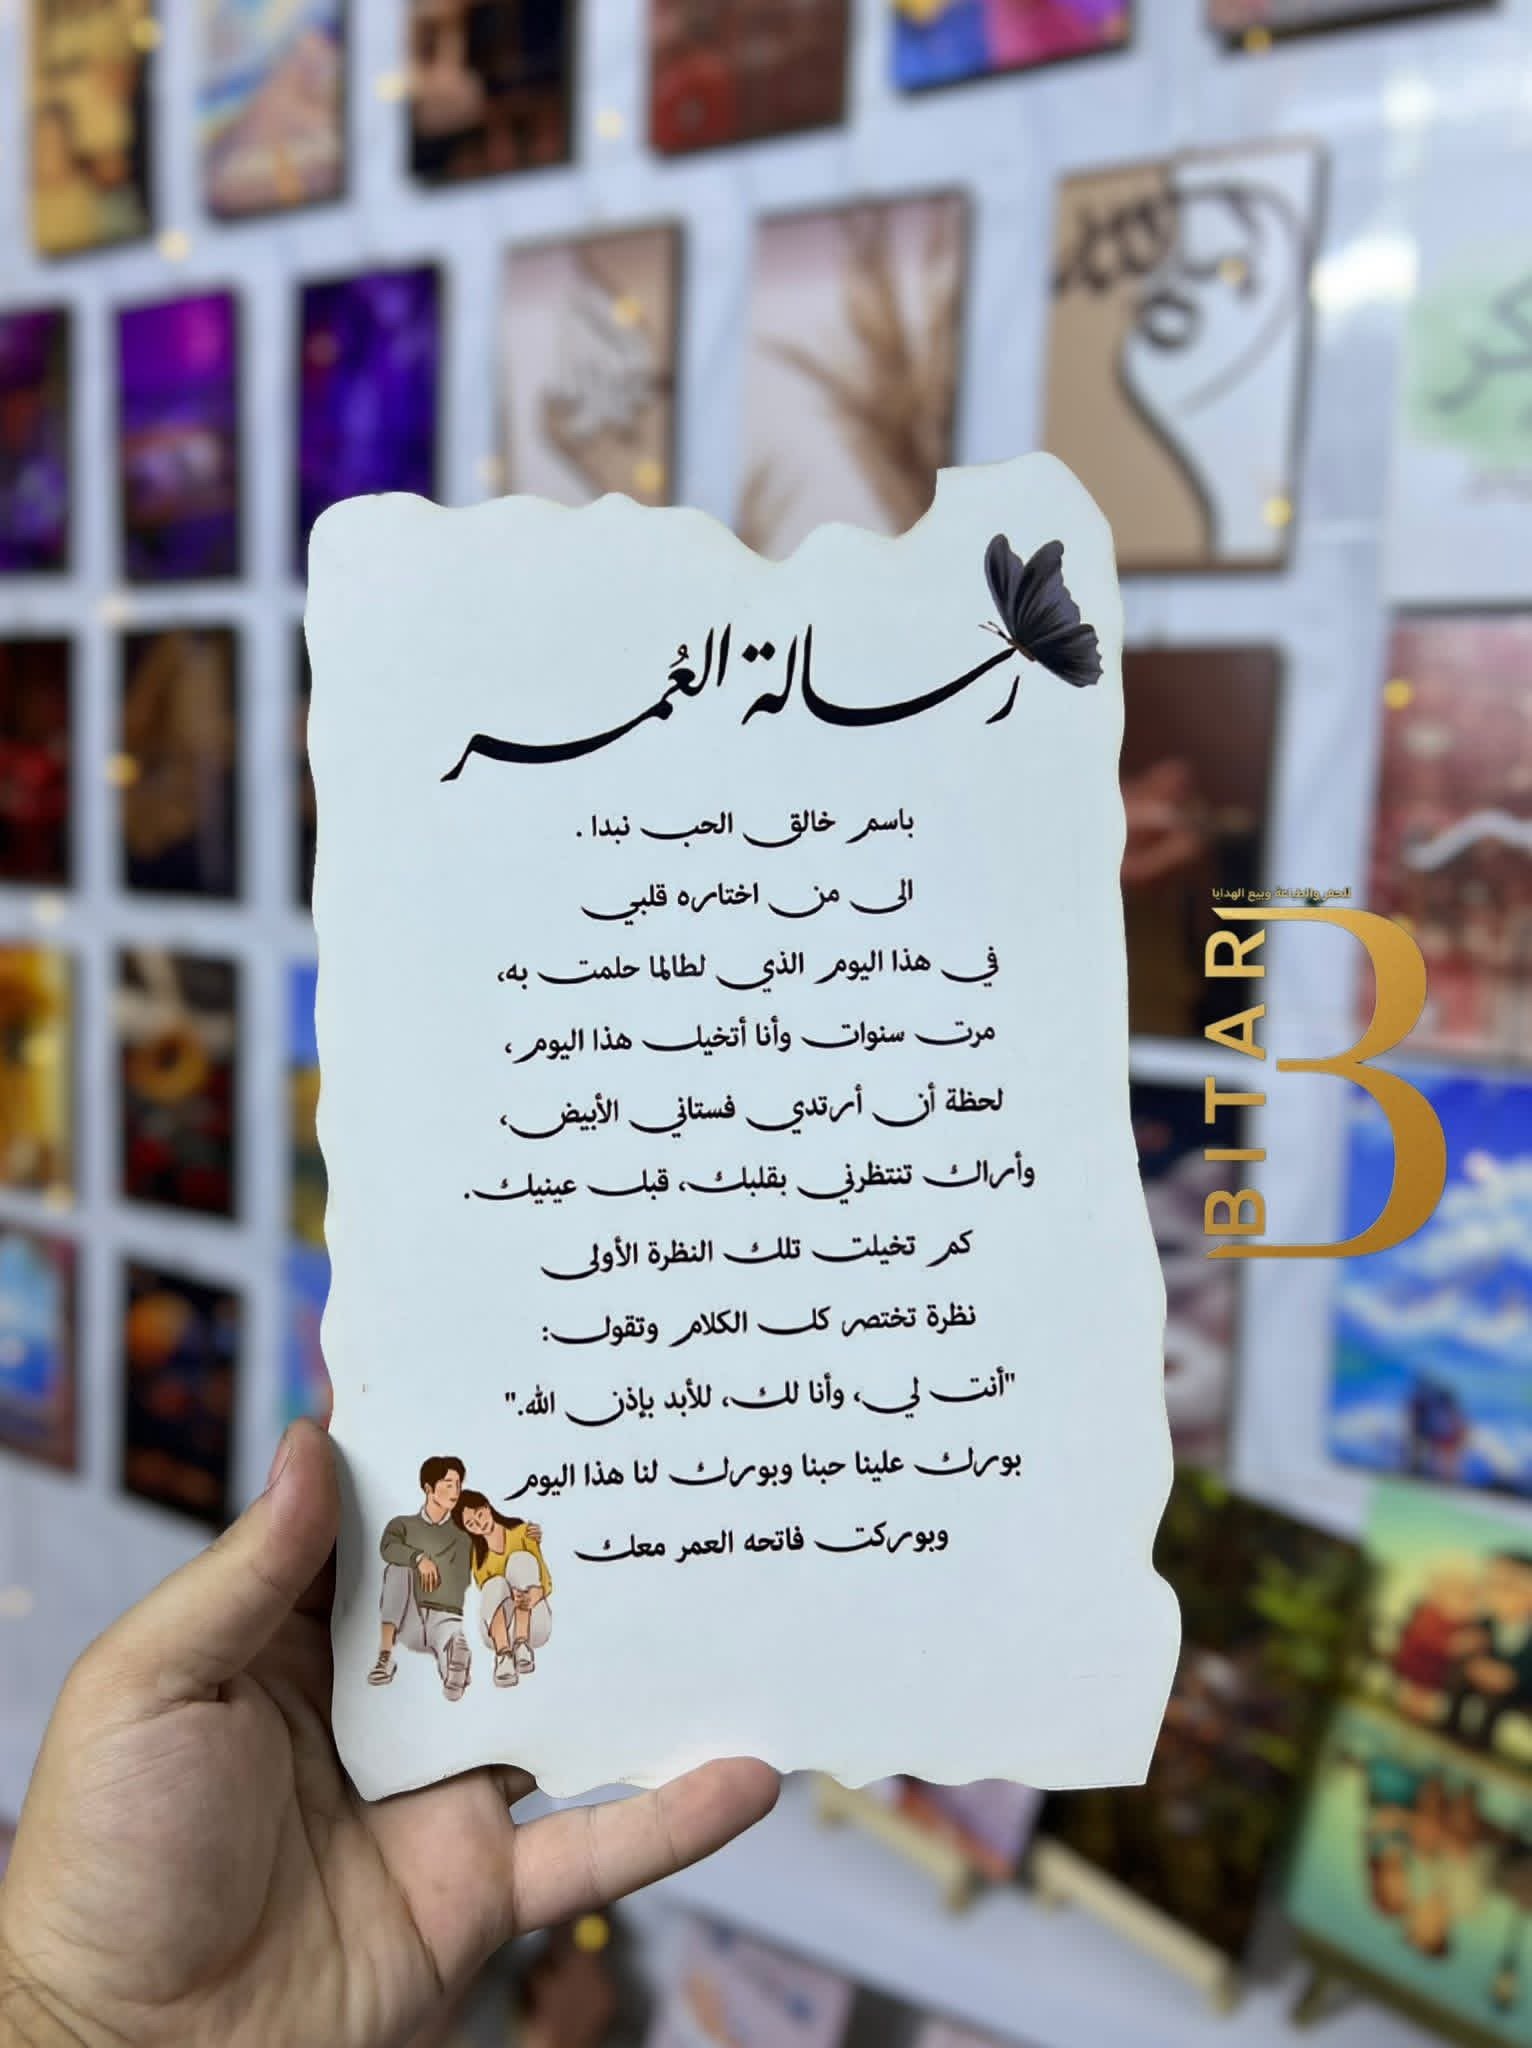 رسالة العُمر
باسم خالق الحب نبدا .
الى من اختاره قلبي
في هذا اليوم الذي لطالما حلمت به،
مرت سنوات وأنا أتخيل هذا اليوم،
لحظة أن أرتدي فستاني الأبيض،
وأراك تنتظرني بقلبك، قبل عينيك.
كم تخيلت تلك النظرة الأولى
نظرة تختصر كل الكلام وتقول:
"أنت لي، وأنا لك، للأبد بإذن الله."
بورك علينا حبنا وبورك لنا هذا اليوم
وبوركت فاتحه العمر معك
للحفر والطباعة وبيع الهدايا
BITAR
B